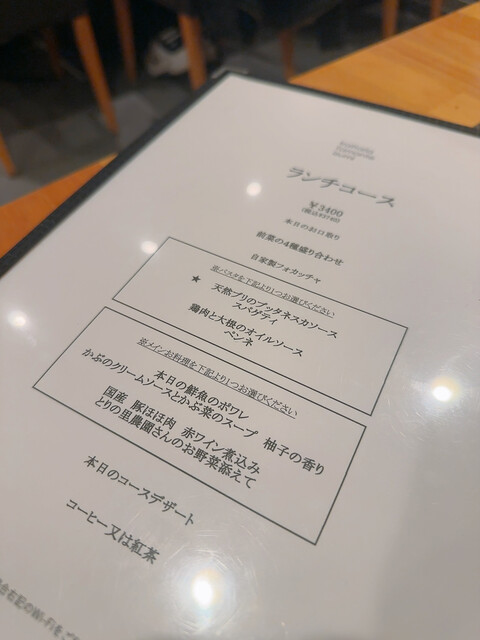 ランチコース
¥3400
本日のお口取り
前菜の4種盛り合わせ
自家製フォカッチャ
※パスタを下記より1つお選びください
★ 天然ブリのプッタネスカソース
スパゲティ
鶏肉と大根のオイルソース
ペンネ
※メインお料理を下記より1つお選びください
本日の鮮魚のポワレ
かぶのクリームソースとかぶ菜のスープ 柚子の香り
国産 豚ほほ肉 赤ワイン煮込み
とりの里農園さんのお野菜添えて
本日のコースデザート
コーヒー又は紅茶